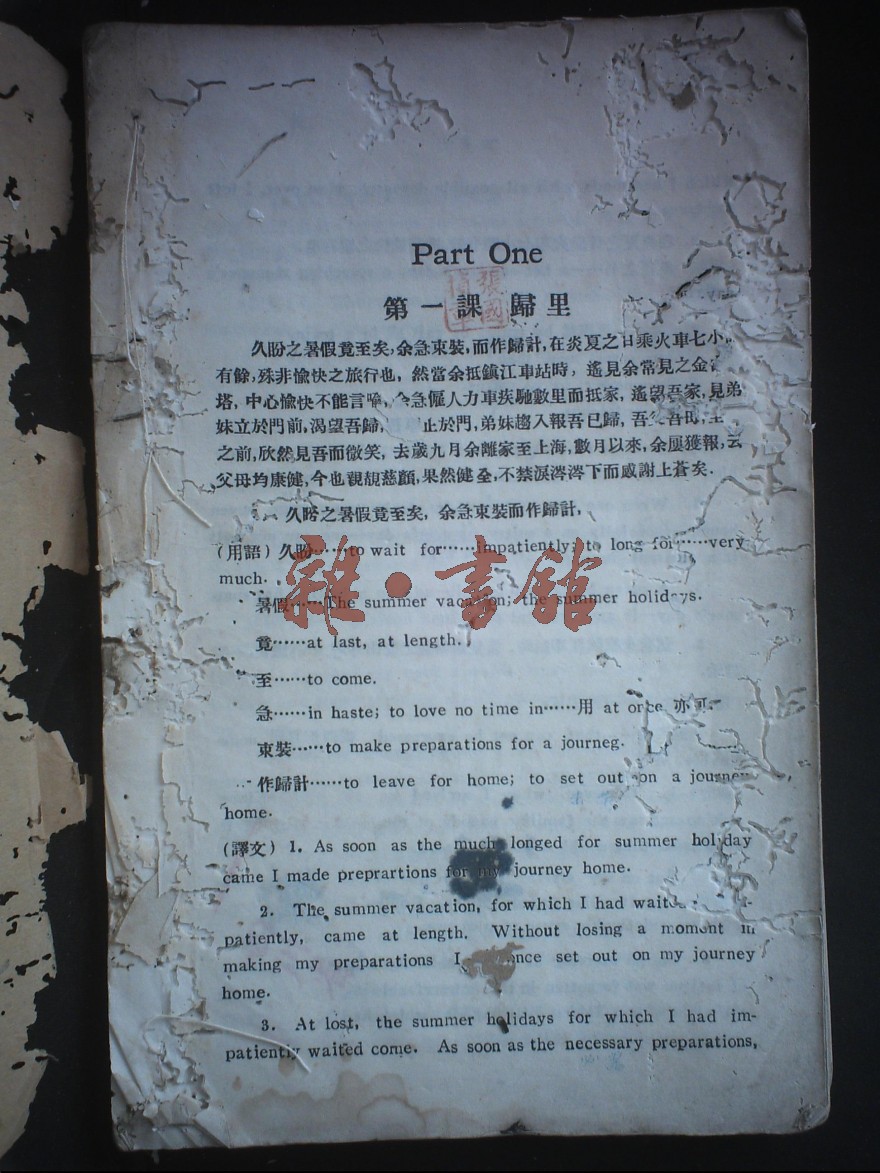 Part One
第一課 歸里
久盼之暑假竟至矣,余急束裝,而作歸計,在炎夏之日乘火車七小
有餘,殊非愉快之旅行也,然當余抵鎮江車站時,遙見余常見之金
塔,中心愉快不能言喻,余急僱人力車疾馳數里而抵家,遙望吾家,見弟
妹立於門前,渴望吾歸, 止於門,弟妹趨入報吾已歸,吾父吾母,至
之前,欣然見吾而微笑,去歲九月余離家至上海,數月以來,余屢獲報,云
父母均康健,今也觀覩慈顏,果然健全,不禁淚涔涔下而感謝上蒼矣.
久盼之暑假竟至矣,余急束裝而作歸計,
(用語)久盼……to wait for……impatiently; to long for……very
much.
暑假……The summer vacation; the summer holidays.
竟……at last, at length.
至……to come.
急……in haste; to love no time in……用 at once 亦可.
束裝……to make preparations for a journeg.
作歸計……to leave for home; to set out on a journey
home.
(譯文) 1. As soon as the much longed for summer holiday
came I made preprartions for my journey home.
2. The summer vacation, for which I had
patiently, came at length. Without losing a moment in
making my preparations I once set out on my journey
home.
3. At lost, the summer holidays for which I had im-
patiently waited come. As soon as the necessary preparations,
雜·書館
張國